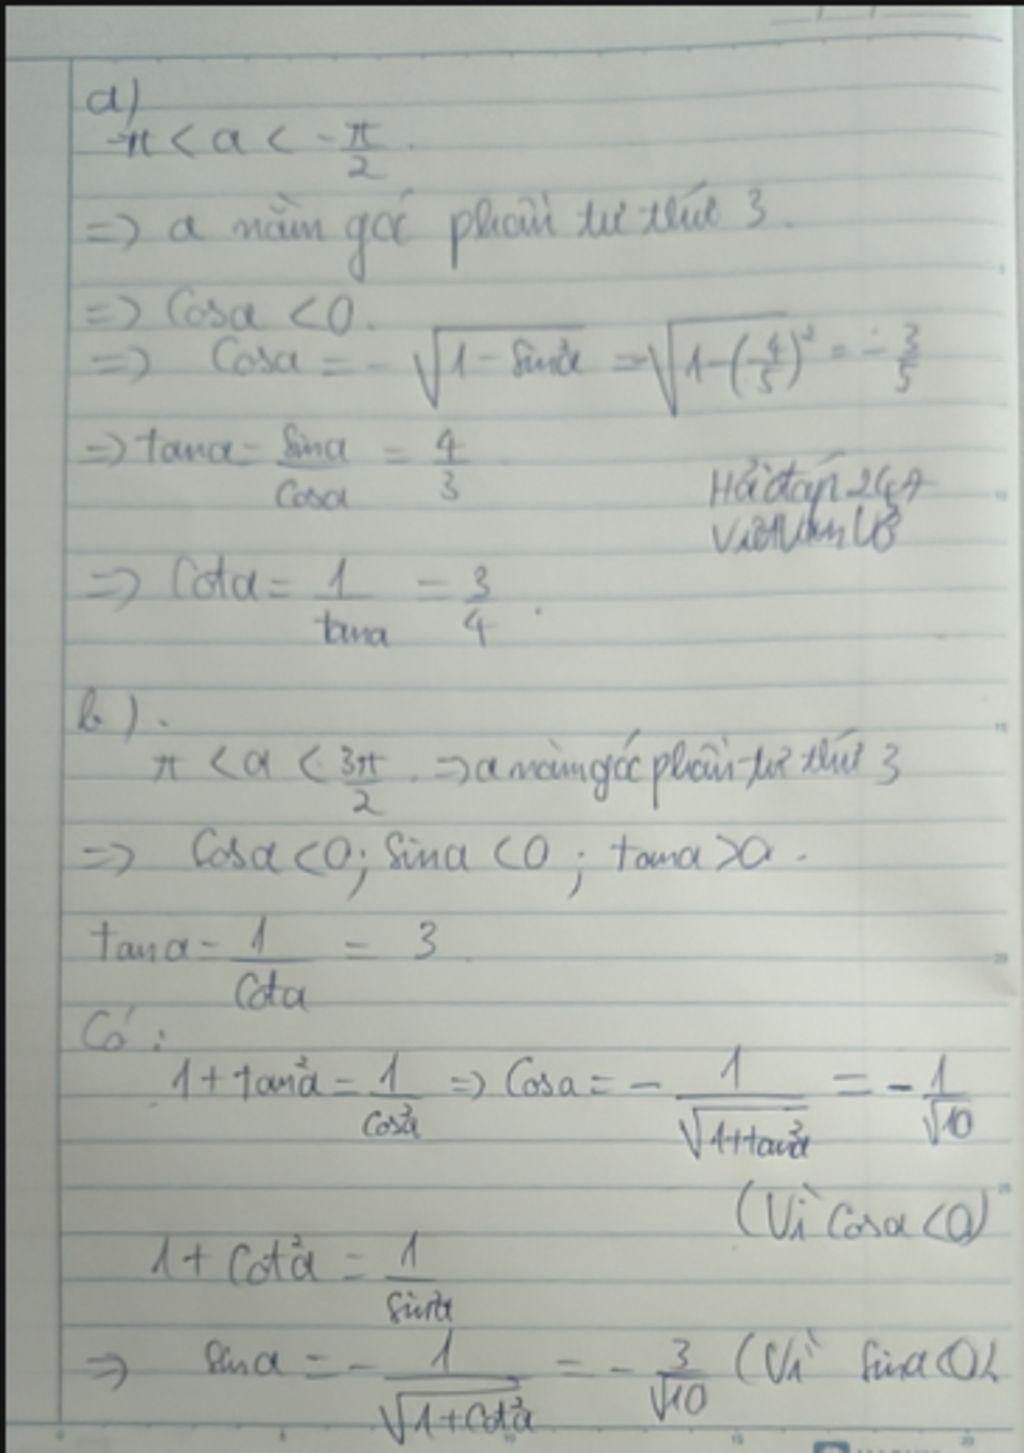 a)
-π < a < -π/2.
=> a nằm góc phần tư thứ 3.
=> Cosa < 0.
=> Cosa = - √(1 - sin²a) = √(1 - (-4/5)²) = -3/5
=> tana = sina/cosa = 4/3
=> Cota = 1/tana = 3/4.
b).
π < a < 3π/2. => a nằm góc phần tư thứ 3
=> Cosa < 0; Sina < 0; tana > 0.
tana = 1/Cota = 3.
Có:
1 + tan²a = 1/cos²a => Cosa = - 1/√(1+tan²a) = - 1/√10
(Vì Cosa < 0)
1 + Cot²a = 1/sin²a
=> sina = - 1/√(1+Cot²a) = - 3/√10 (Vì Sina < 0).